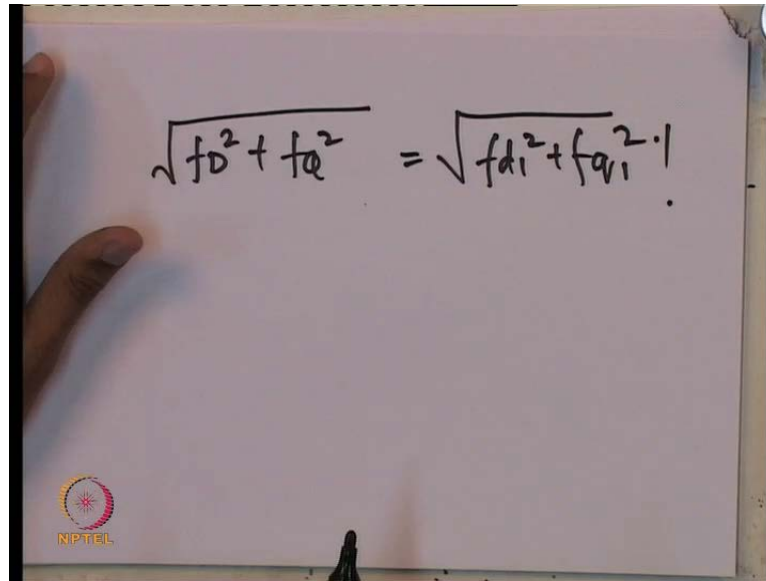 √fD² + fQ² = √fd₁² + fq₁² . !
NPTEL